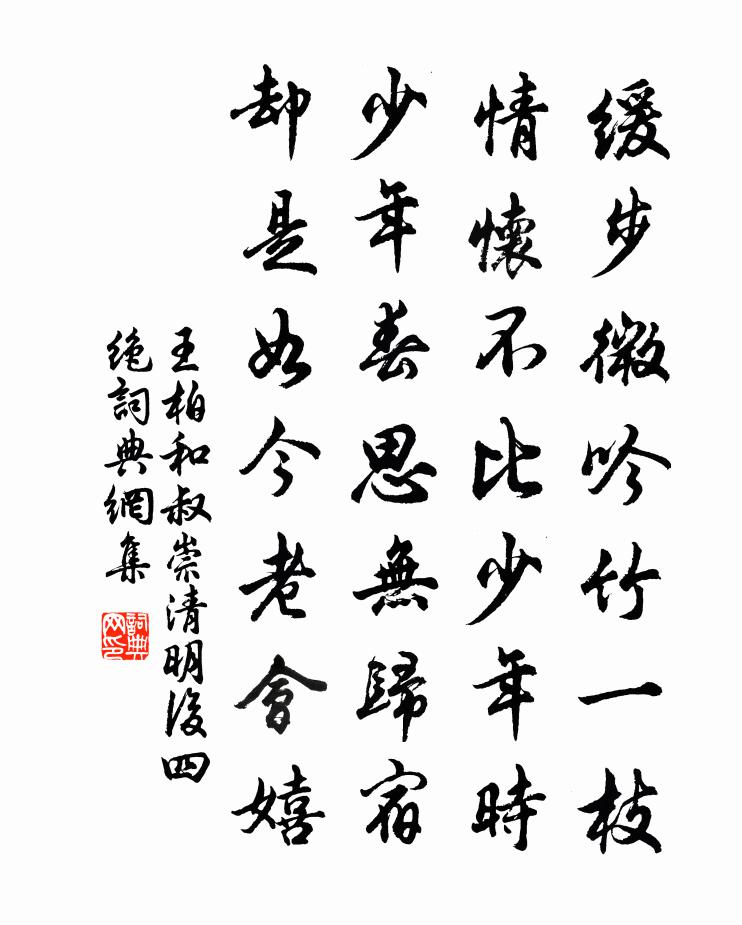 緩步微吟竹一枝
情懷不比少年時
少年春思無歸宿
却是如今老會嬉
王柏和叔崇清明後四
絶詞典網集
詞典
网印